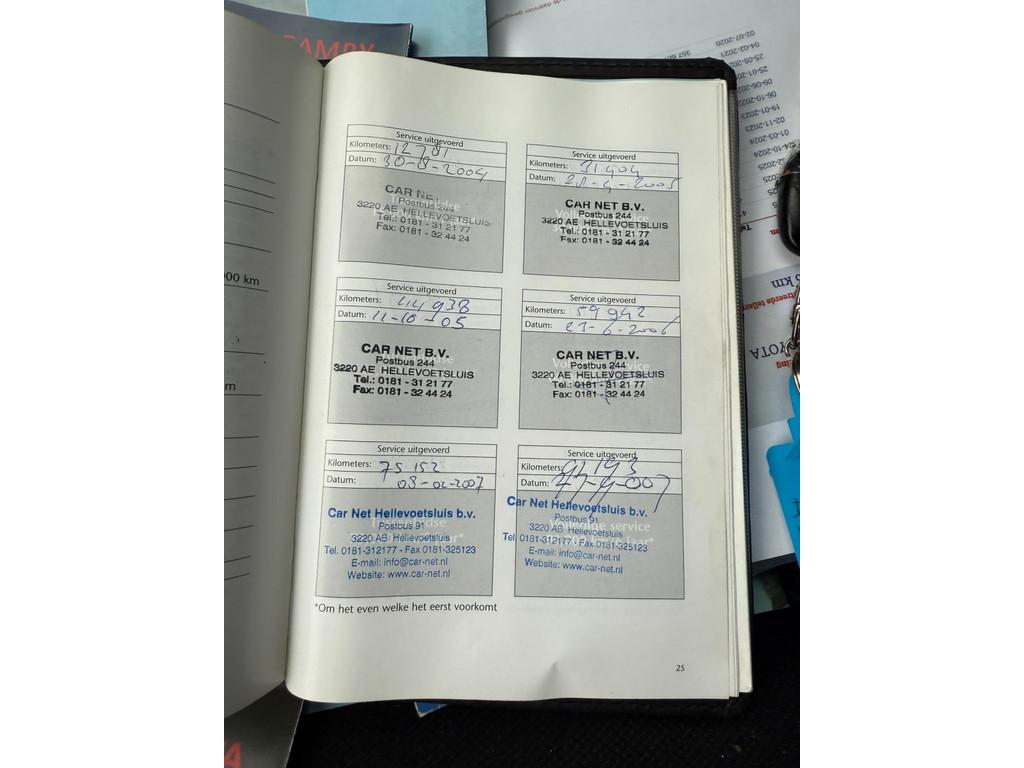 CAMRY
02-07-2020
04-02-2021
25-05-202
25-01-202
09-06-202
06-10-2022
19-01-2023
02-11-2023
01-03-2024
24-10-2024
000 km
Service uitgevoerd
Kilometers: 12781
Datum: 30-8-2004
CAR NET
Postbus 244
3220 AE HELLEVOETSLUIS
Tel.: 0181 - 31 21 77
Fax: 0181 - 32 44 24
Service uitgevoerd
Kilometers: 31404
Datum: 2005
Volledige service
CAR NET B.V.
Postbus 244
3220 AE HELLEVOETSLUIS
Tel.: 0181 - 31 21 77
Fax: 0181 - 32 44 24
Service uitgevoerd
Kilometers: 44938
Datum: 11-10-05
CAR NET B.V.
Postbus 244
3220 AE HELLEVOETSLUIS
Tel.: 0181 - 31 21 77
Fax: 0181 - 32 44 24
Service uitgevoerd
Kilometers: 59942
Datum: 21-6-2006
CAR NET B.V.
Postbus 244
3220 AE HELLEVOETSLUIS
Tel.: 0181 - 31 21 77
Fax: 0181 - 32 44 24
Service uitgevoerd
Kilometers: 75152
Datum: 08-02-2007
Car Net Hellevoetsluis b.v.
Postbus 91
3220 AB Hellevoetsluis
Tel. 0181-312177 - Fax 0181-325123
E-mail: info@car-net.nl
Website: www.car-net.nl
Service uitgevoerd
Kilometers: 91193
Datum:
Car Net Hellevoetsluis b.v.
Postbus 91
Volledige service
3220 AB Hellevoetsluis
Tel. 0181-312177 - Fax 0181-325123
E-mail: info@car-net.nl
Website: www.car-net.nl
*Om het even welke het eerst voorkomt
25
km
YOTA